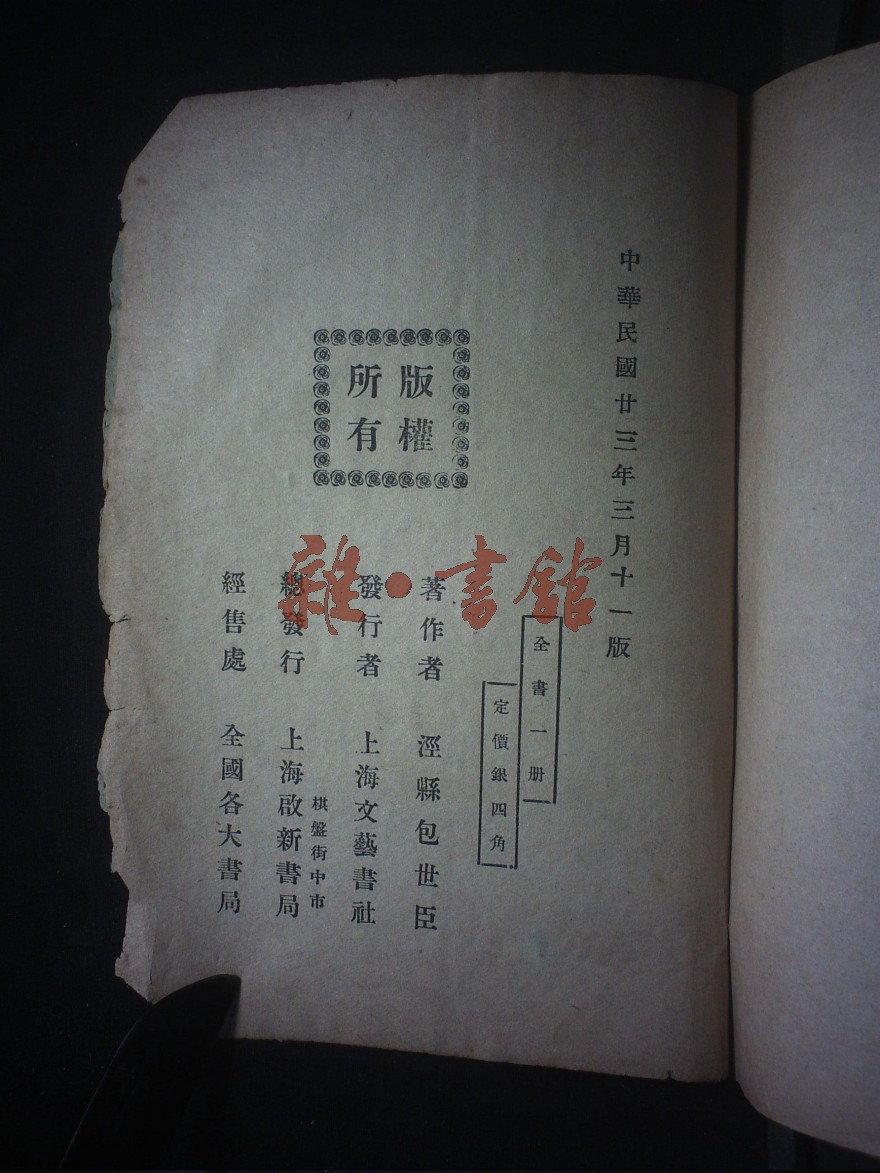 中華民國廿三年三月十一版
全書一册
定價銀四角
版權
所有
著作者 涇縣包世臣
發行者 上海文藝書社
棋盤街中市
總發行 上海啟新書局
經售處 全國各大書局
雜·書館